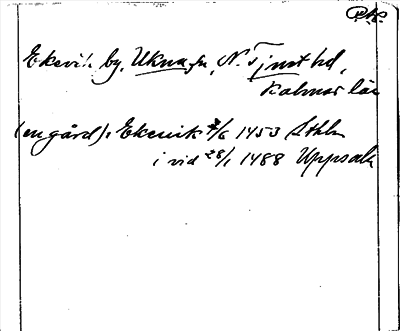 Ekevik by, Ukna sn, N. Tjust hd,
Kalmar län
(en gård). Ekeuik 3/6 1453 Sthlm
i vid 28/1 1488 Uppsala